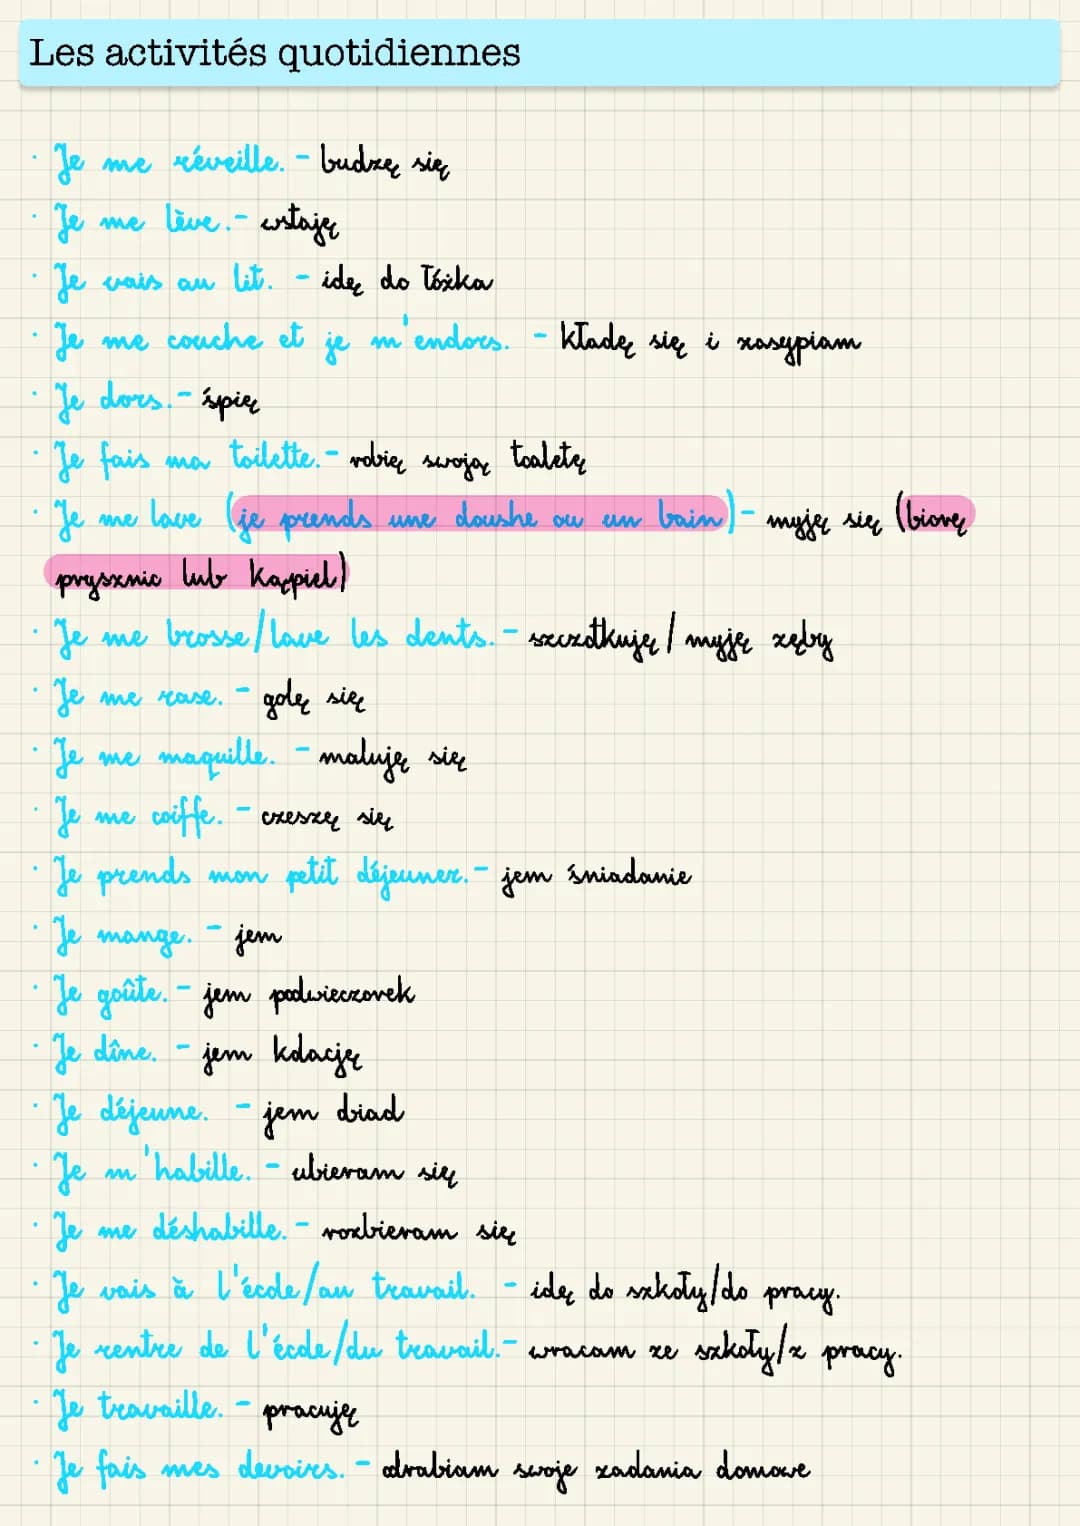 Les activités quotidiennes
· Je me réveille. - budzę się
· Je me lève. - wstaję
· Je vais au lit. - idę do łóżka
· Je me couche et je m'endors. - kładę się i zasypiam
· Je dors. - śpię
· Je fais ma toilette. - robię swoją toaletę
· Je me lave (je prends une doushe ou un bain) - myję się (biorę
prysznic lub kąpiel)
· Je me brosse/lave les dents. - szczotkuję / myję zęby
· Je me rase. - golę się
· Je me maquille. - maluję się
· Je me coiffe. - czeszę się
· Je prends mon petit déjeuner. - jem śniadanie
· Je mange. - jem
· Je goûte. - jem podwieczorek
· Je dîne. - jem kolację
· Je déjeune. - jem obiad
· Je m'habille. - ubieram się
· Je me déshabille. - rozbieram się
· Je vais à l'école/au travail. - idę do szkoły/do pracy.
· Je rentre de l'école/du travail. - wracam ze szkoły/z pracy.
· Je travaille. - pracuję
· Je fais mes devoirs. - odrabiam swoje zadania domowe